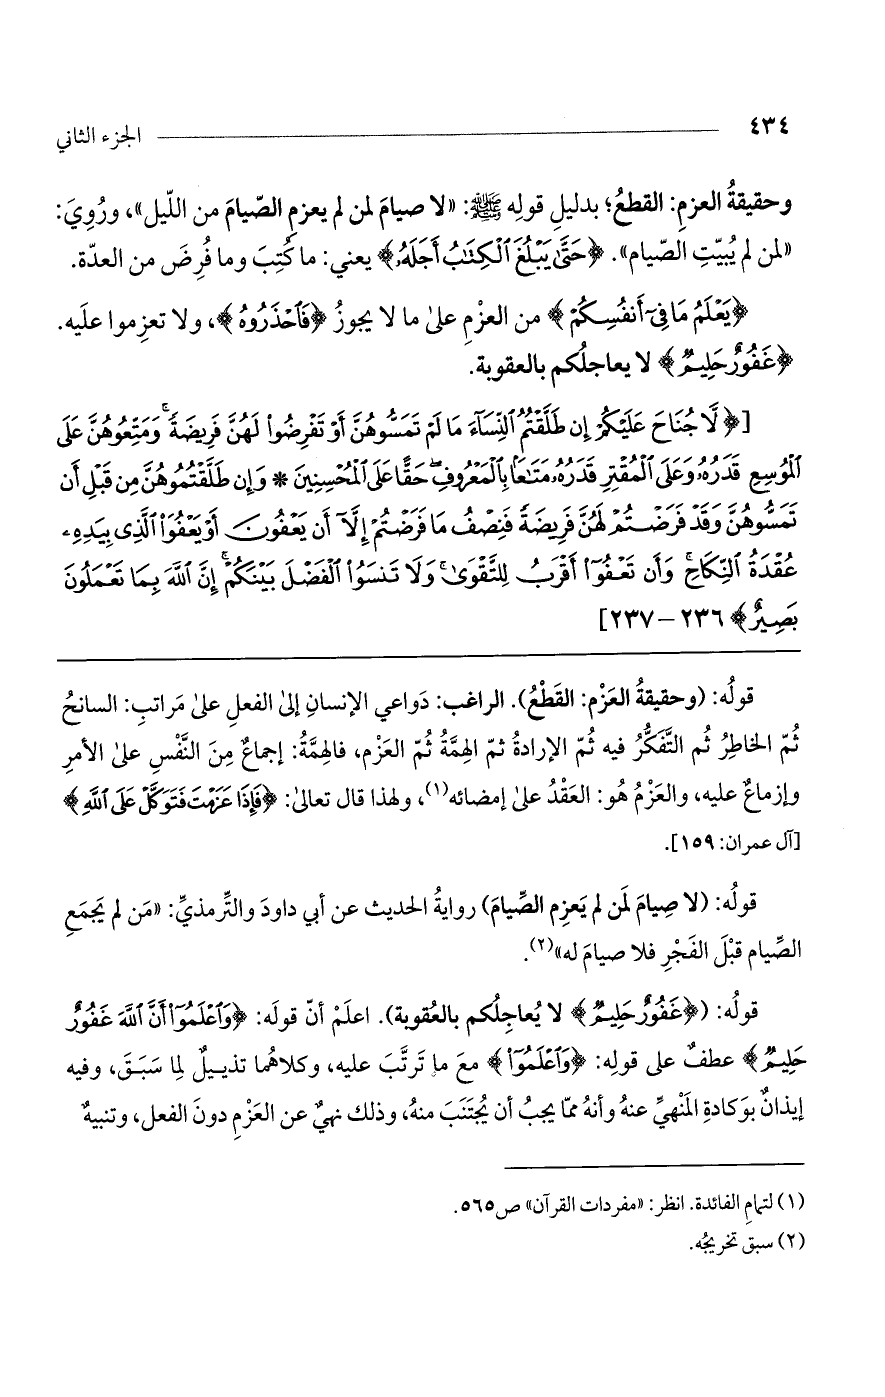 ٤٣٤ الجزء الثاني
وحقيقةُ العزمِ: القطعُ؛ بدليلِ قولِه ﷺ: «لا صيامَ لمن لم يعزمِ الصّيامَ من اللّيل»، ورُوِيَ:
«لمن لم يُبيّتِ الصّيام». ﴿حَتَّىٰ يَبْلُغَ ٱلْكِتَٰبُ أَجَلَهُۥ﴾ يعني: ما كُتِبَ وما فُرِضَ من العدّة.
﴿يَعْلَمُ مَا فِىٓ أَنفُسِكُمْ﴾ من العزْمِ علىٰ ما لا يجوزُ ﴿فَٱحْذَرُوهُ﴾، ولا تعزِموا علَيه.
﴿غَفُورٌ حَلِيمٌ﴾ لا يعاجلُكم بالعقوبة.
[﴿لَّا جُنَاحَ عَلَيْكُمْ إِن طَلَّقْتُمُ ٱلنِّسَآءَ مَا لَمْ تَمَسُّوهُنَّ أَوْ تَفْرِضُوا۟ لَهُنَّ فَرِيضَةً ۚ وَمَتِّعُوهُنَّ عَلَى
ٱلْمُوسِعِ قَدَرُهُۥ وَعَلَى ٱلْمُقْتِرِ قَدَرُهُۥ مَتَٰعًۢا بِٱلْمَعْرُوفِ ۖ حَقًّا عَلَى ٱلْمُحْسِنِينَ * وَإِن طَلَّقْتُمُوهُنَّ مِن قَبْلِ أَن
تَمَسُّوهُنَّ وَقَدْ فَرَضْتُمْ لَهُنَّ فَرِيضَةً فَنِصْفُ مَا فَرَضْتُمْ إِلَّآ أَن يَعْفُونَ أَوْ يَعْفُوَا۟ ٱلَّذِى بِيَدِهِۦ
عُقْدَةُ ٱلنِّكَاحِ ۚ وَأَن تَعْفُوٓا۟ أَقْرَبُ لِلتَّقْوَىٰ ۚ وَلَا تَنسَوُا۟ ٱلْفَضْلَ بَيْنَكُمْ ۚ إِنَّ ٱللَّهَ بِمَا تَعْمَلُونَ
بَصِيرٌ﴾ ٢٣٦ – ٢٣٧]
قولُه: (وحقيقةُ العَزْمِ: القَطْعُ). الراغب: دَواعي الإنسانِ إلىٰ الفعلِ علىٰ مَراتبِ: السانحُ
ثُمّ الخاطِرُ ثُم التَّفكُّرُ فيه ثُمّ الإرادةُ ثمّ الهِمَّةُ ثُمّ العَزْم، فالهِمَّةُ: إجماعٌ مِنَ النَّفْسِ علىٰ الأمرِ
وإزماعٌ عليه، والعَزْمُ هُو: العَقْدُ علىٰ إمضائه(١)، ولهذا قال تعالىٰ: ﴿فَإِذَا عَزَمْتَ فَتَوَكَّلْ عَلَى ٱللَّهِ﴾
[آل عمران: ١٥٩].
قولُه: (لا صِيامَ لَمن لم يَعزِم الصِّيامَ) روايةُ الحديث عن أبي داودَ والتِّرمذيِّ: «مَن لم يَجمَعِ
الصِّيام قبْلَ الفَجْرِ فلا صيامَ له»(٢).
قولُه: (﴿غَفُورٌ حَلِيمٌ﴾ لا يُعاجِلُكم بالعُقوبة). اعلَمْ أنّ قولَه: ﴿وَٱعْلَمُوٓا۟ أَنَّ ٱللَّهَ غَفُورٌ
حَلِيمٌ﴾ عطفٌ على قولِه: ﴿وَٱعْلَمُوٓا۟﴾ معَ ما تَرتَّبَ عليه، وكلاهُما تذييلٌ لِما سَبَقَ، وفيه
إيذانٌ بوَكادةِ المَنْهيِّ عنهُ وأنهُ ممّا يجبُ أن يُجتَنَبَ منهُ، وذلك نهيٌ عن العَزْمِ دونَ الفعل، وتنبيهٌ
(١) لتمامِ الفائدة. انظر: «مفردات القرآن» ص٥٦٥.
(٢) سبق تخريجُه.